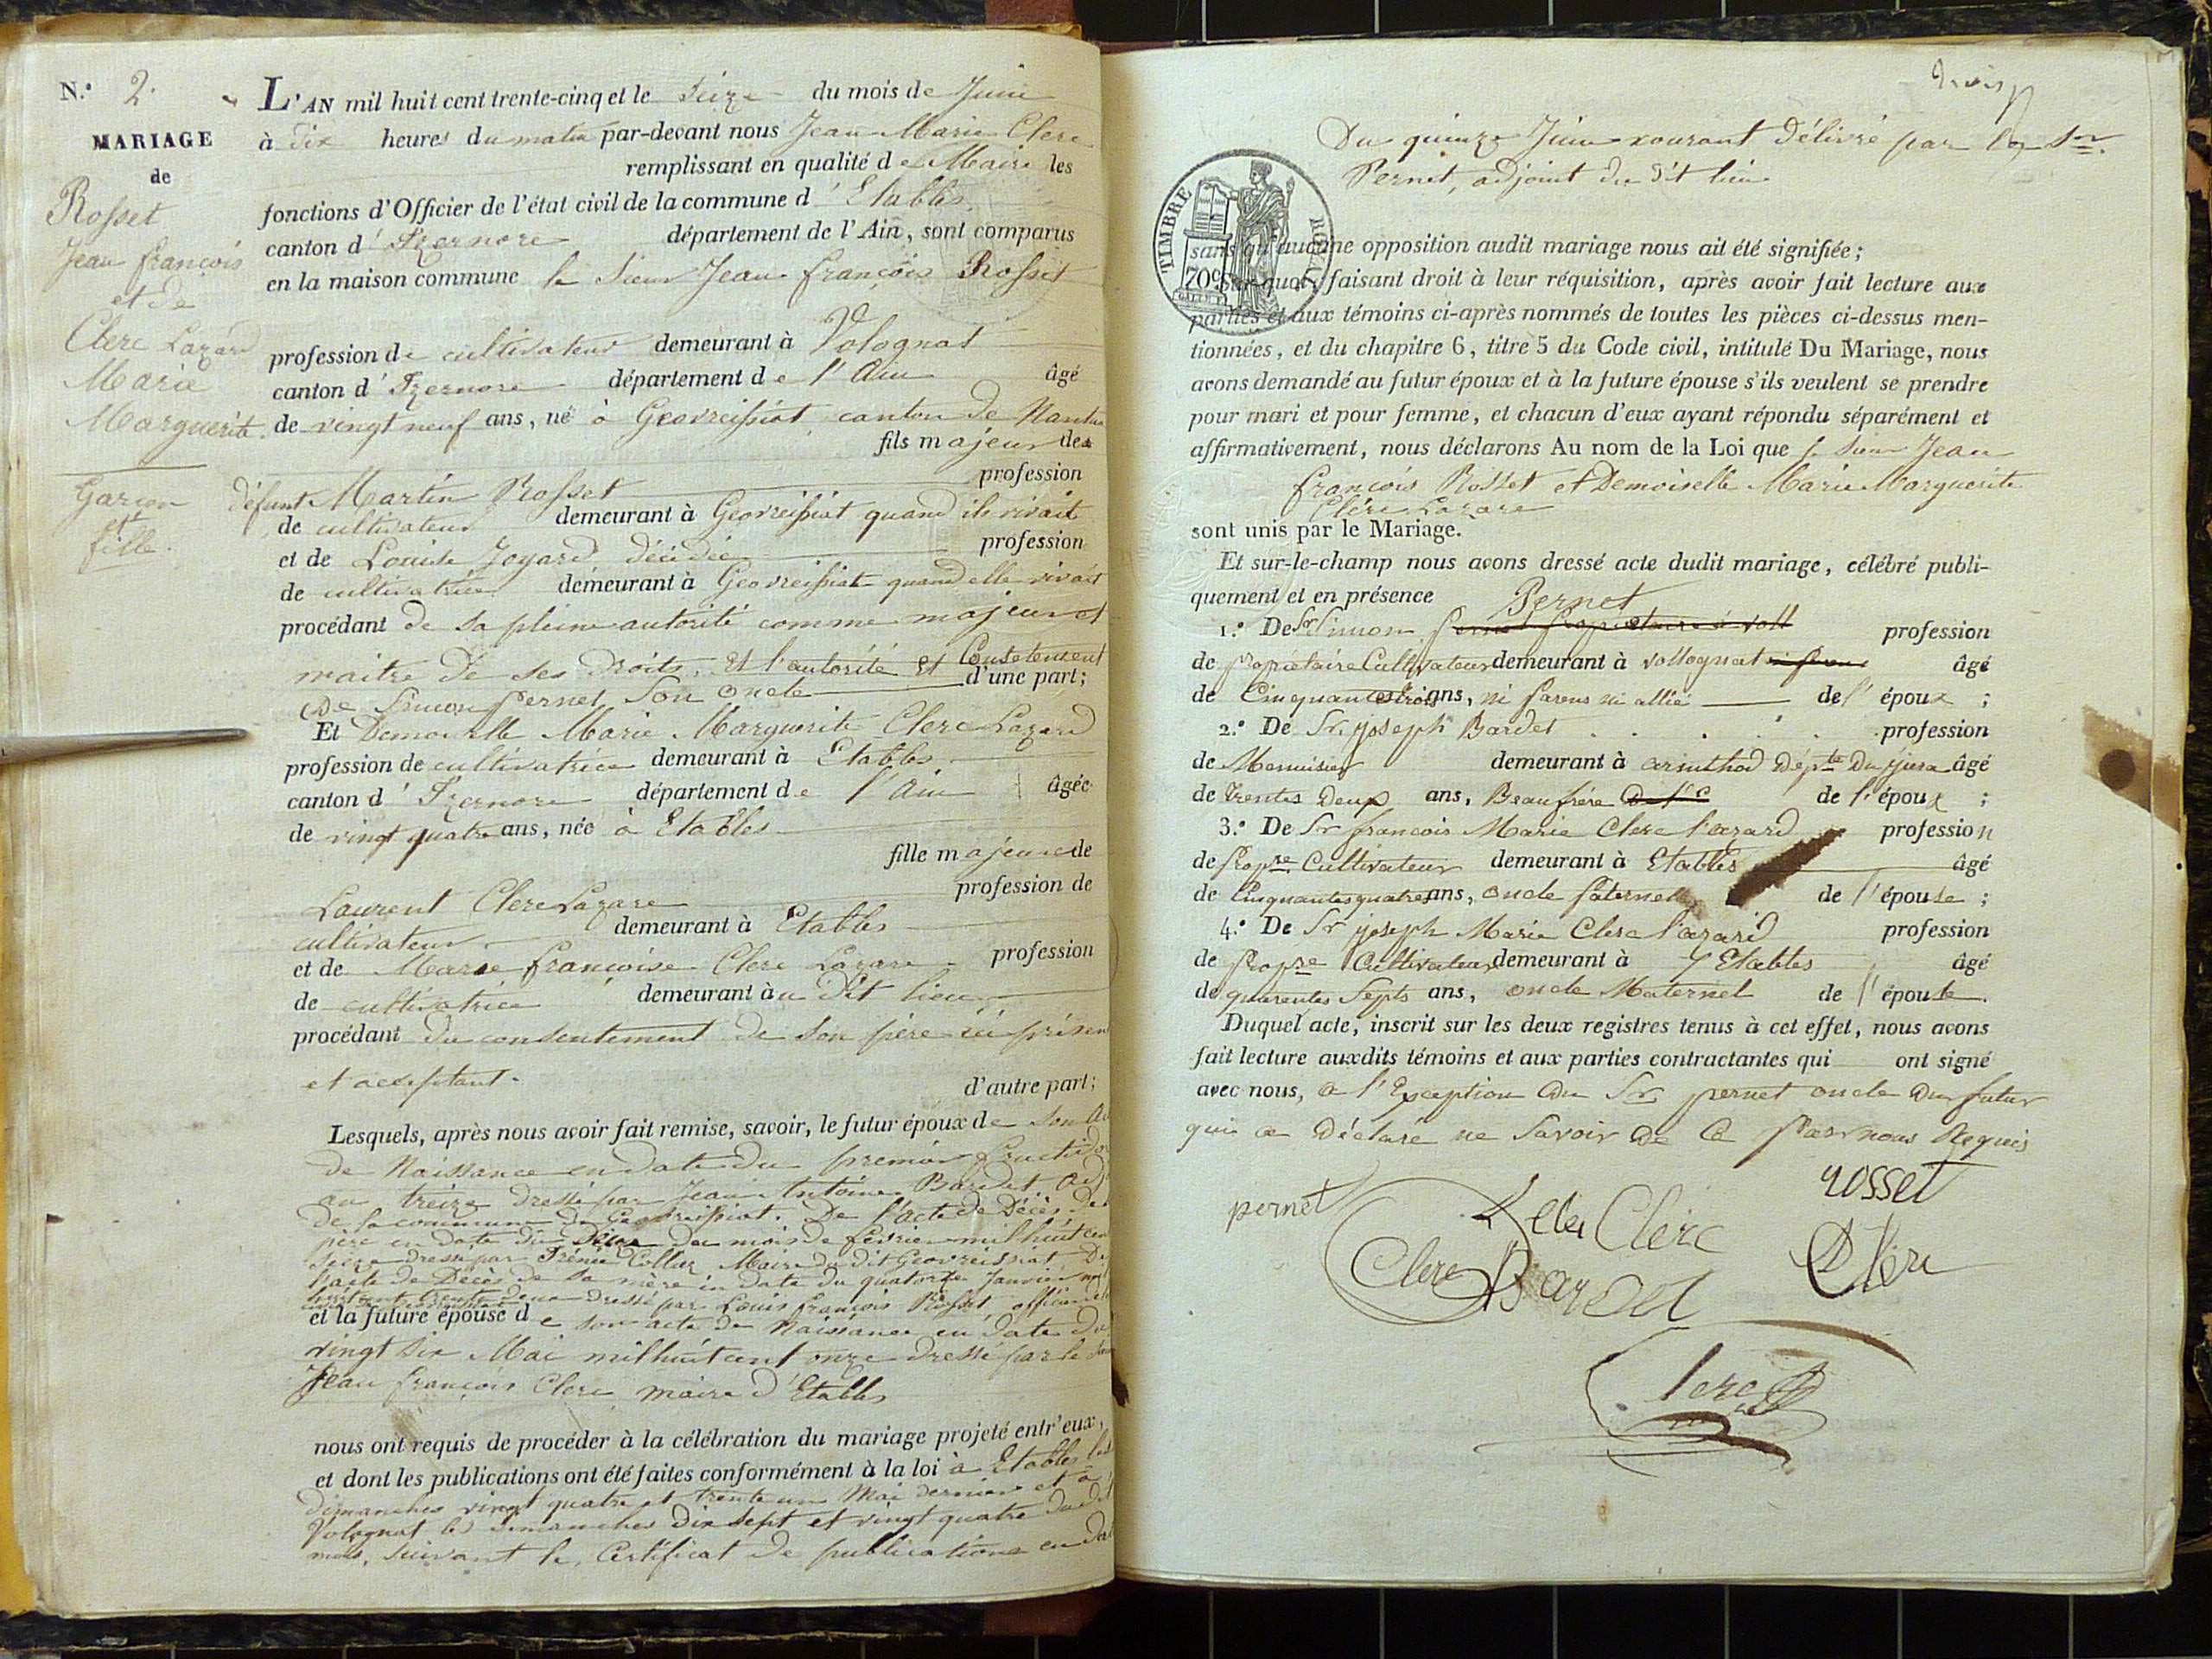 N.° 2.
MARIAGE
de
Rosset
Jean françois
et de
Clerc Lazard
Marie
Marguerite.
Garçon
et
fille.
L'AN mil huit cent trente-cinq et le Seize du mois de Juin
à Dix heures du matin par-devant nous Jean Marie Clerc
remplissant en qualité de Maire les
fonctions d'Officier de l'état civil de la commune d'Etables
canton d'Izernore département de l'Ain, sont comparus
en la maison commune le Sieur Jean françois Rosset
profession de cultivateur demeurant à Volognat
canton d'Izernore département de l'Ain âgé
de vingt neuf ans, né à Geovreissiat canton de Nantua
fils majeur de
défunt Martin Rosset profession
de cultivateur demeurant à Geovreissiat quand il vivait
et de Louise Joyard décédée profession
de cultivatrice demeurant à Geovreissiat quand elle vivait
procédant de sa pleine autorité comme majeur et
maitre de ses droits, Et l'autorité Et Consetement
De Simon Pernet Son oncle d'une part;
Et Demoiselle Marie Marguerite Clerc Lazard
profession de cultivatrice demeurant à Etables
canton d'Izernore département de l'Ain âgée
de vingt quatre ans, née à Etables
fille majeure de
Laurent Clerc Lazare profession de
cultivateur demeurant à Etables
et de Marie françoise Clerc Lazare profession
de cultivatrice demeurant àu dit lieu
procédant du consentement de son père ici présen
et acceptant. d'autre part;
Lesquels, après nous avoir fait remise, savoir, le futur époux de son Ac
de Naissance en date du premier fructidor
an treize dressé par Jean Antoine Bardet adj
de la commune de Geovreissiat. De l'acte de Décès de
père en date du du mois de février mil huit cent
dressé par Maire du dit Geovreissiat, De
l'acte de Décès de sa mère en date du quatorze Janvier mil
huit cent trente deux dressé par Louis françois Rosset officier
et la future épouse de son acte de Naissance en date du
vingt six Mai mil huit cent onze dressé par le Sieur
Jean françois Clerc maire d'Etables
nous ont requis de procéder à la célébration du mariage projeté entr'eux,
et dont les publications ont été faites conformément à la loi à Etables les
dimanches vingt quatre et trente un Mai dernier et à
Volognat les dimanches Dix sept et vingt quatre du dit
mois, suivant le Certificat de publications en dat
Du quinze Juin courant délivré par le Sr
Pernet, adjoint du dit lieu
TIMBRE ROYAL
70c
sans qu'aucune opposition audit mariage nous ait été signifiée;
Sur quoi, faisant droit à leur réquisition, après avoir fait lecture aux
parties et aux témoins ci-après nommés de toutes les pièces ci-dessus men-
tionnées, et du chapitre 6, titre 5 du Code civil, intitulé Du Mariage, nous
avons demandé au futur époux et à la future épouse s'ils veulent se prendre
pour mari et pour femme, et chacun d'eux ayant répondu séparément et
affirmativement, nous déclarons Au nom de la Loi que le Sieur Jean
françois Rosset et Demoiselle Marie Marguerite
Clerc Lazare
sont unis par le Mariage.
Et sur-le-champ nous avons dressé acte dudit mariage, célébré publi-
quement et en présence Pernet
1.° De Sr Simon Pernet propriétaire à voll profession
de propriétaire Cultivateur demeurant à vollognat âgé
de Cinquantestrois ans, ni parens ni allié de l'époux;
2.° De Sr. joseph Bardet profession
de Menuisier demeurant à arinthod Dépte Du jura âgé
de trentes Deux ans, Beaufrére de l'époux;
3.° De Sr françois Marie Clerc lazard profession
de propre Cultivateur demeurant à Etables âgé
de Cinquantesquatres ans, oncle paternelle de l'épouse;
4.° De Sr joseph Marie Clerc lazard profession
de propre Cultivateur demeurant à Etables âgé
de quarentes Septs ans, oncle Maternel de l'épouse.
Duquel acte, inscrit sur les deux registres tenus à cet effet, nous avons
fait lecture auxdits témoins et aux parties contractantes qui ont signé
avec nous, a l'Exception du Sr pernet oncle du futur
qui a Déclaré ne Savoir de Ce par nous Requis
pernet
rosset
Clerc
Clerc
Bardet
Clerc